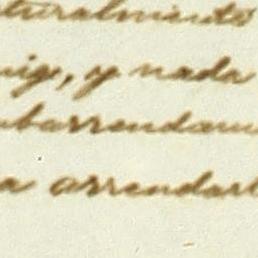 turalmente
nigo, y nada
ubarrendam
a arrendar